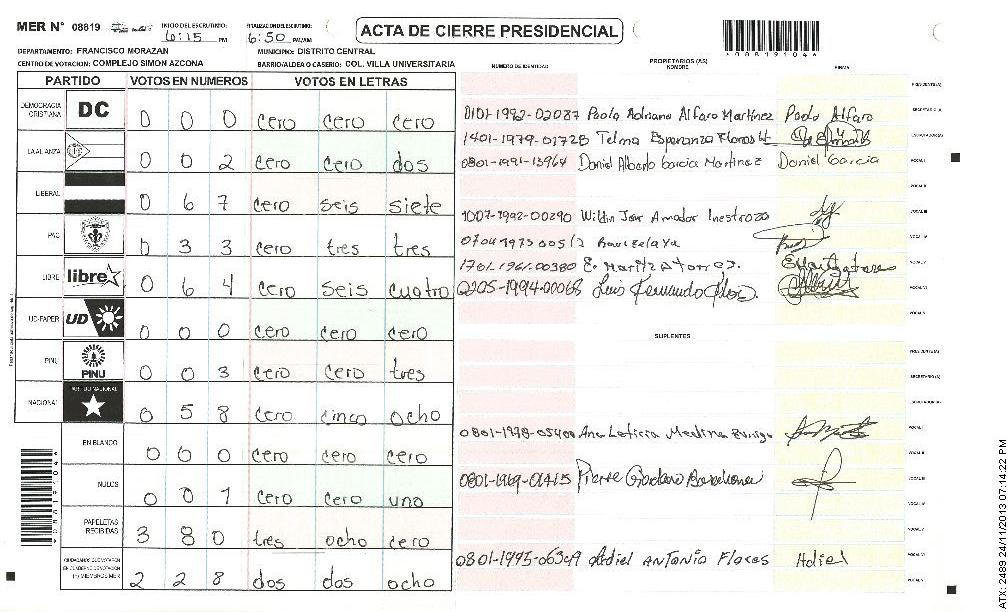 MER N° 08819
INICIO DEL ESCRUTINIO: 6:15 PM
FINALIZACION DEL ESCRUTINIO: 6:50 PM/AM
ACTA DE CIERRE PRESIDENCIAL
*08819104*
DEPARTAMENTO: FRANCISCO MORAZAN
MUNICIPIO: DISTRITO CENTRAL
CENTRO DE VOTACION: COMPLEJO SIMON AZCONA
BARRIO/ALDEA O CASERIO: COL. VILLA UNIVERSITARIA
PARTIDO VOTOS EN NUMEROS VOTOS EN LETRAS
DEMOCRACIA CRISTIANA DC 0 0 0 cero cero cero
LA ALIANZA 0 0 2 cero cero dos
LIBERAL 0 6 7 cero seis siete
PAC 0 3 3 cero tres tres
LIBRE libre 0 6 4 cero seis cuatro
UD-FAPER UD 0 0 0 cero cero cero
PINU PINU 0 0 3 cero cero tres
NACIONAL PARTIDO NACIONAL 0 5 8 cero cinco ocho
EN BLANCO 0 0 0 cero cero cero
NULOS 0 0 1 cero cero uno
PAPELETAS RECIBIDAS 3 8 0 tres ocho cero
CIUDADANOS QUE VOTARON EN CUADERNO DE VOTACION (+) MIEMBROS MER 2 2 8 dos dos ocho
NUMERO DE IDENTIDAD
PROPIETARIOS (AS)
NOMBRE
FIRMA
PRESIDENTE(A)
SECRETARIO(A) 0101-1992-02087 Paola Adriana Alfaro Martinez Paola Alfaro
ESCRUTADOR(A) 1401-1979-01728 Telma Esperanza Flores H
VOCAL I 0801-1991-13964 Daniel Alberto Garcia Martinez Daniel Garcia
VOCAL II
VOCAL III 1007-1992-00290 Jose Amador Inestroza
VOCAL IV
VOCAL V 1701-1961-00380 E. Maritza Torres.
VOCAL VI 0205-1994-00068 Luis Fernando
SUPLENTES
PRESIDENTE(A)
SECRETARIO(A)
ESCRUTADOR(A)
VOCAL I Ana Leticia Medina
VOCAL II
VOCAL III
VOCAL IV
VOCAL V
VOCAL VI 0801-1995-06349 Adiel ANTONIO Flores Adiel
ATX-2489 24/11/2013 07:14:22 PM